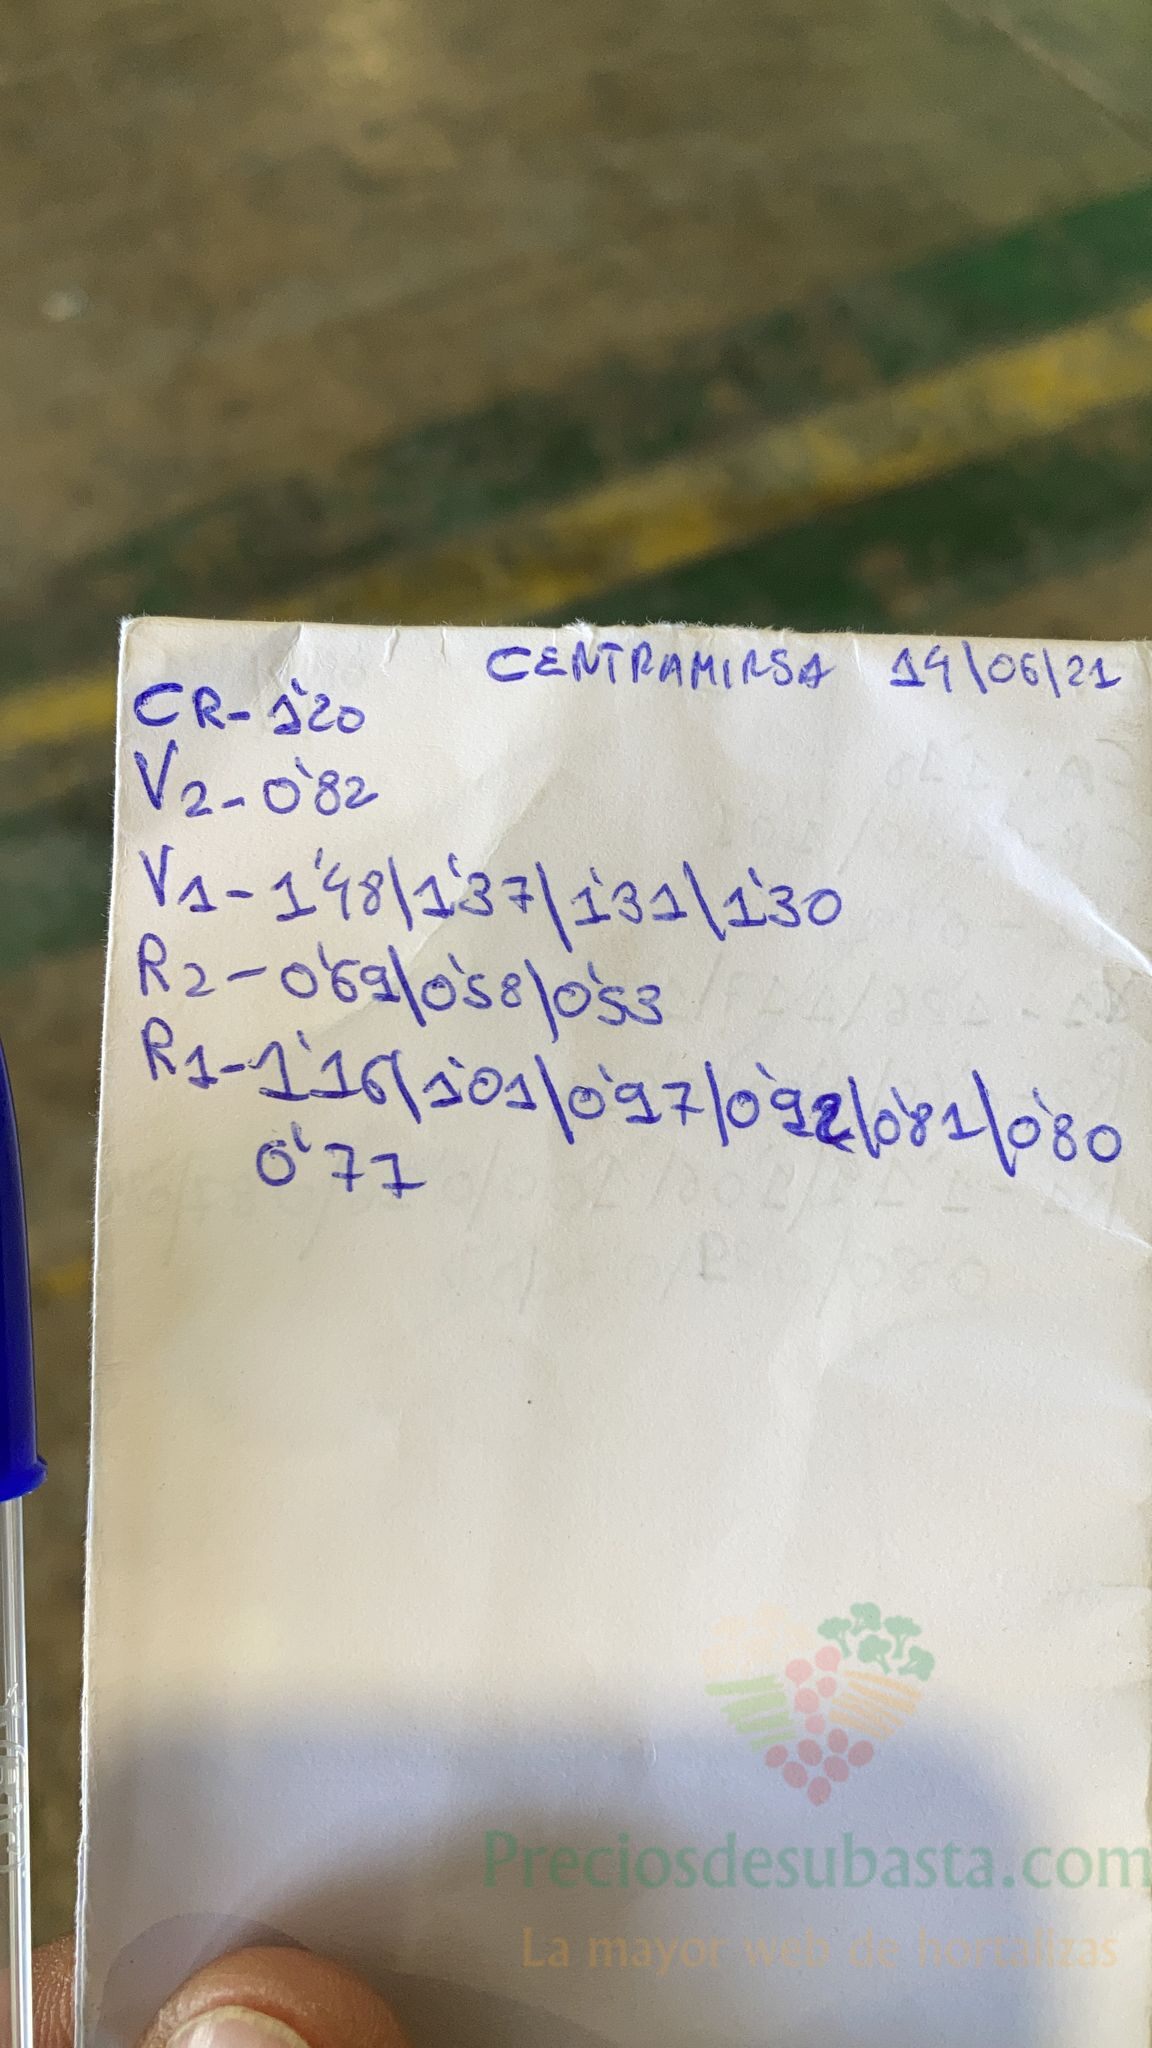 CENTRAMIRSA 14/06/21
CR- 1'20
V2- 0'82
V1- 1'48/1'37/1'31/1'30
R2- 0'69/0'58/0'53
R1- 1'16/1'01/0'97/0'92/0'81/0'80
0'77
Preciosdesubasta.com
La mayor web de hortalizas